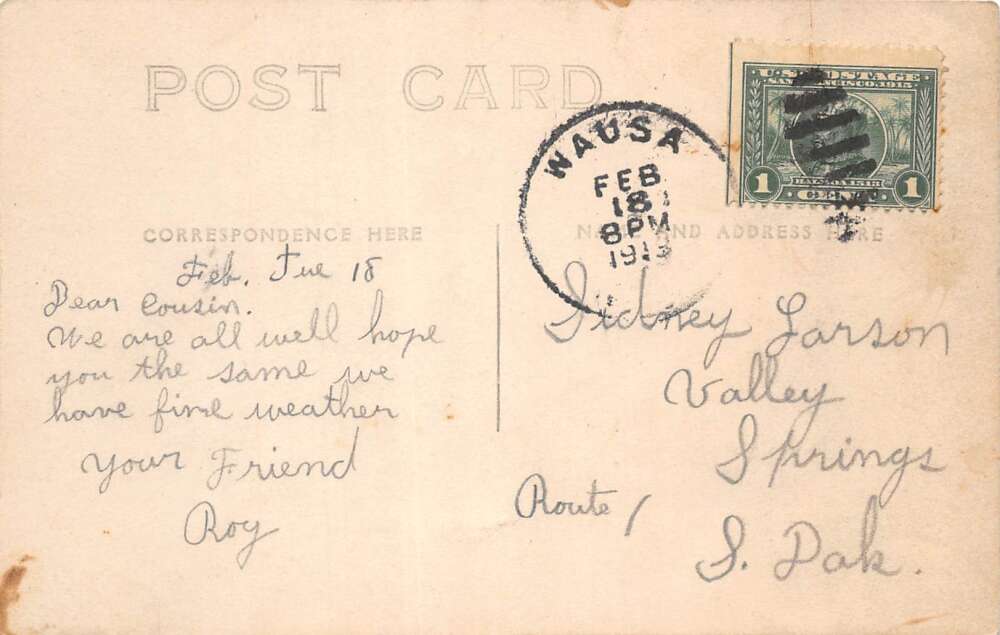 POST CARD
U.S. POSTAGE
SAN FRANCISCO, 1915
BALBOA 1513
1 CENT 1
WAUSA
FEB
18
8 PM
1913
CORRESPONDENCE HERE
NAME AND ADDRESS HERE
Feb. Tue 18
Dear Cousin.
We are all well hope
you the same we
have fine weather
Your Friend
Roy
Sidney Larson
Valley
Springs
Route 1
S. Dak.